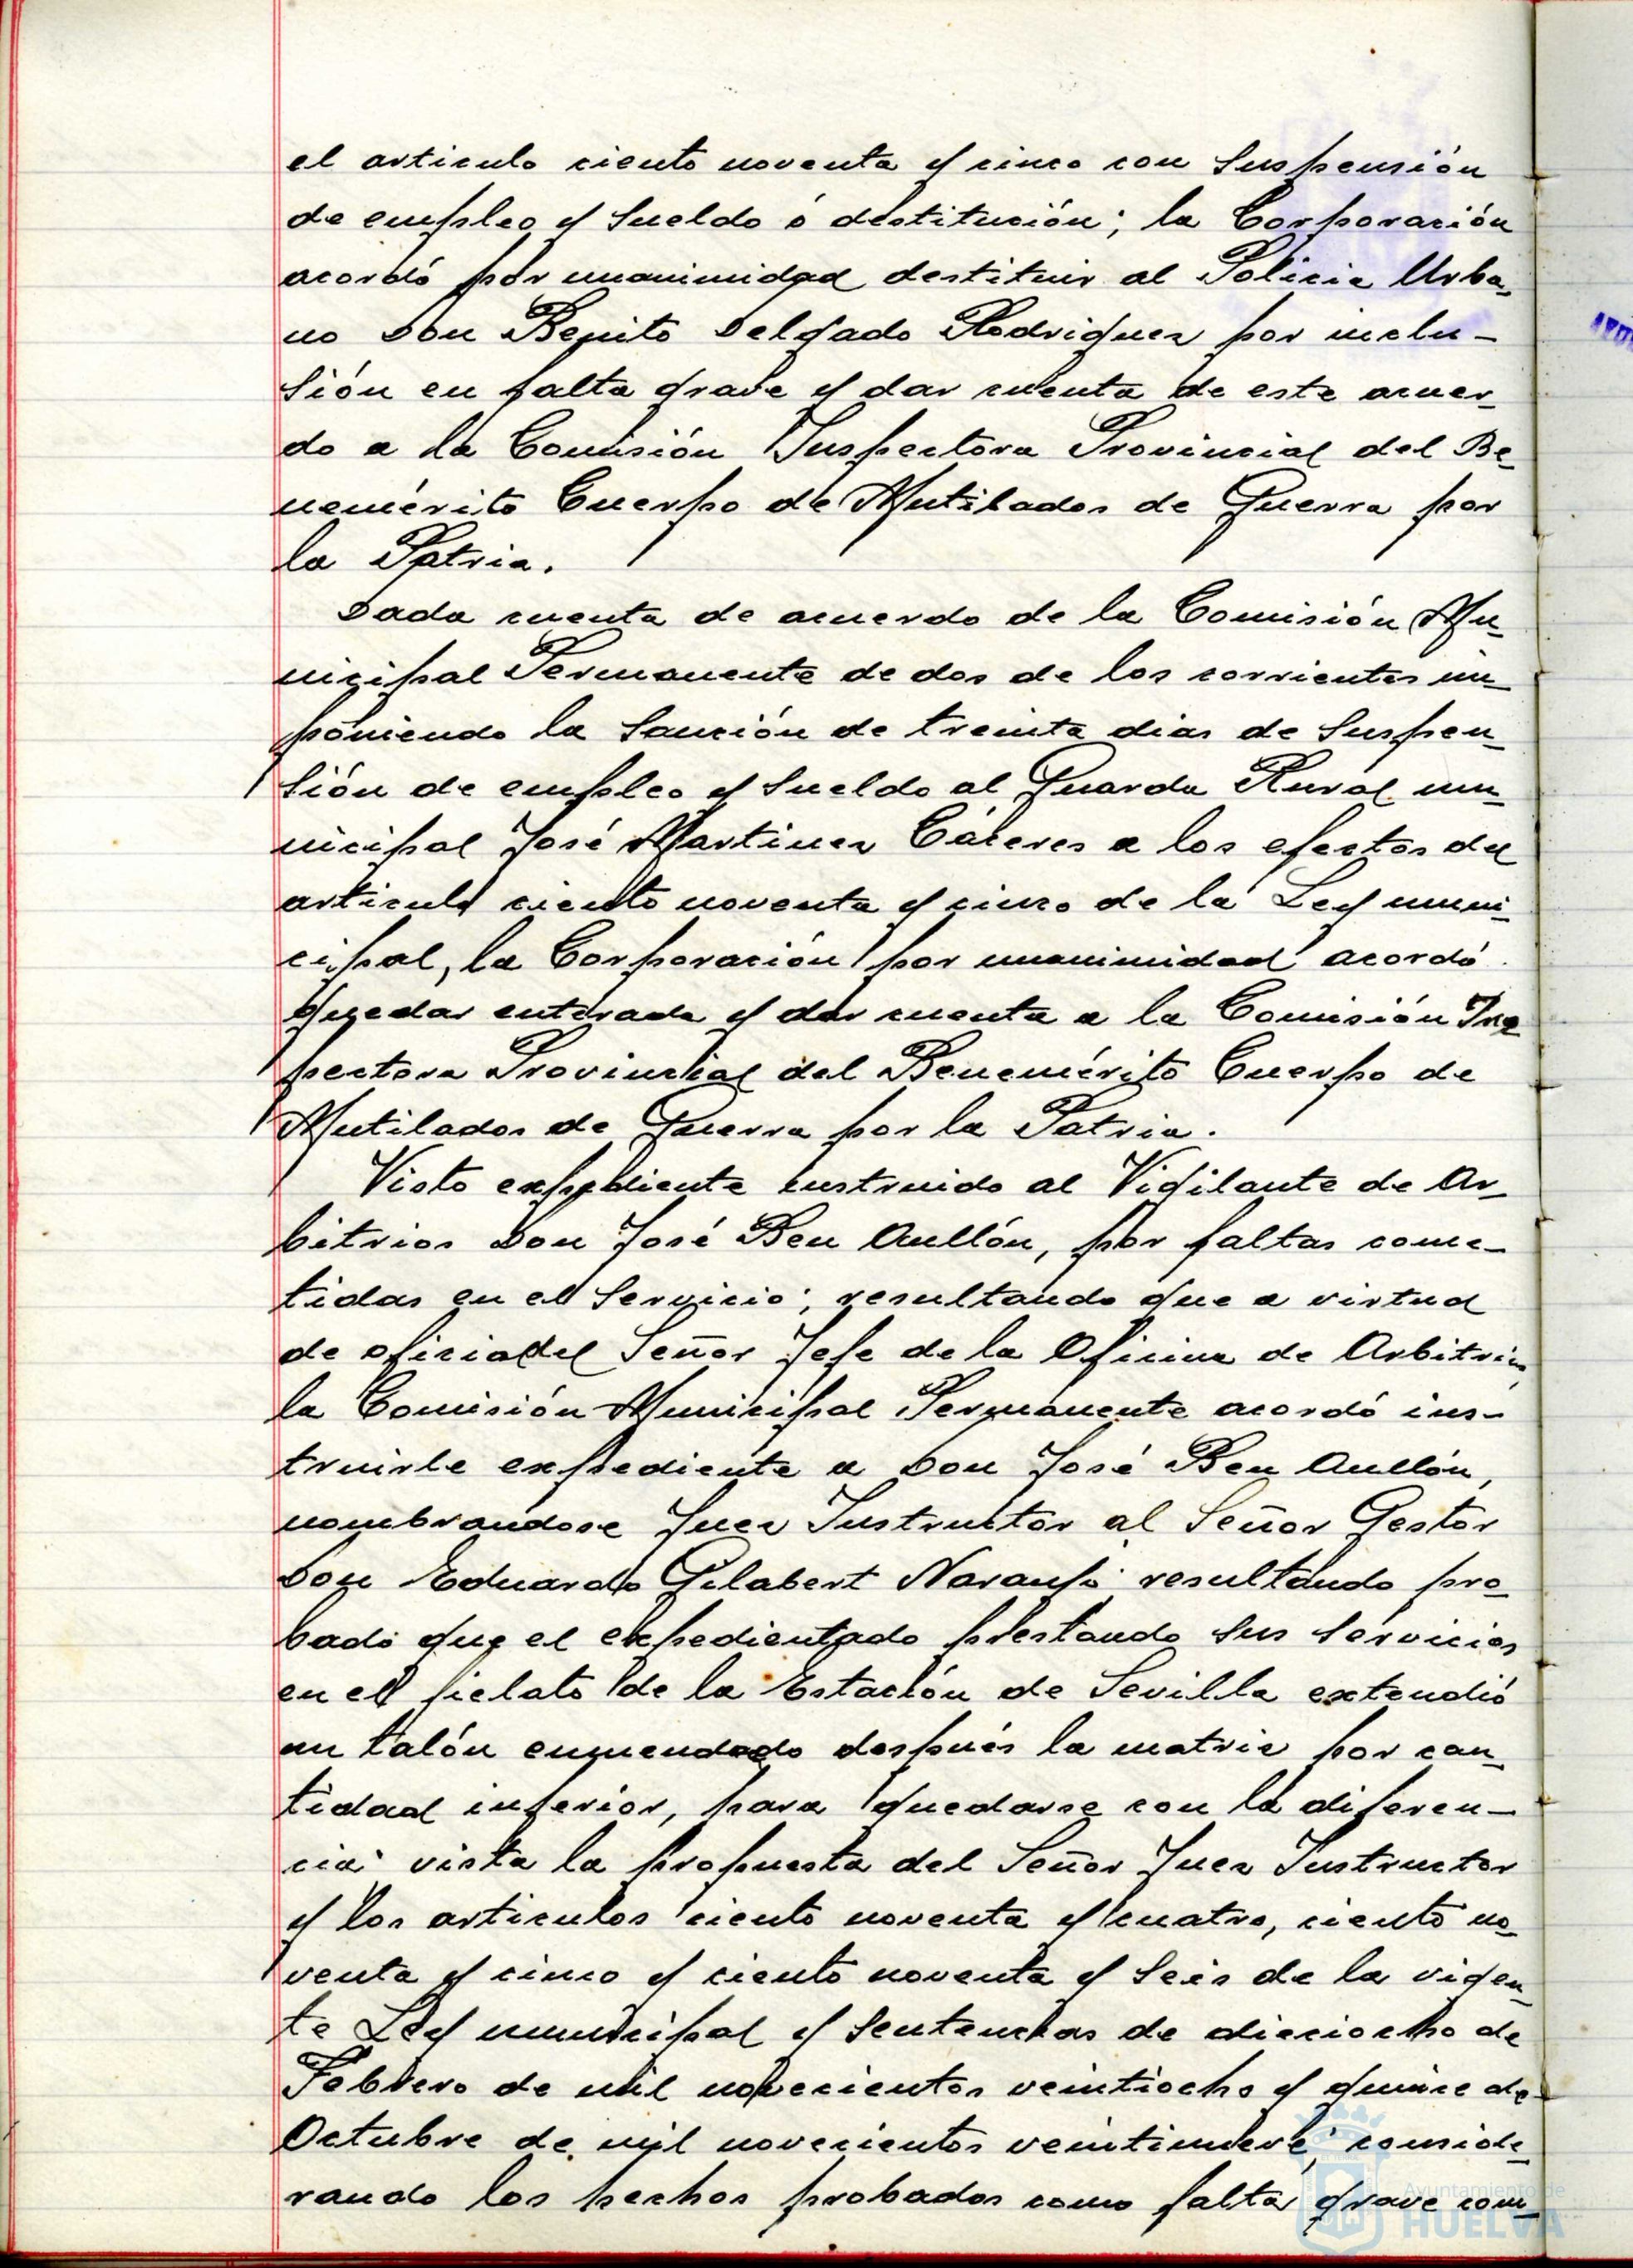 el articulo ciento noventa y cinco con suspensión
de empleo y sueldo ó destitución; la Corporación
acordó por unanimidad destituir al Policia Urba-
no Don Benito Delgado Rodriguez por inclu-
sión en falta grave y dar cuenta de este acuer-
do a la Comisión Inspectora Provincial del Be-
nemérito Cuerpo de Mutilados de Guerra por
la Patria.
Dada cuenta de acuerdo de la Comisión Mu-
nicipal Permanente de dos de los corrientes im-
poniendo la sanción de treinta dias de suspen-
sión de empleo y sueldo al Guarda Rural mu-
nicipal José Martinez Cáceres a los efectos del
articulo ciento noventa y cinco de la Ley muni-
cipal, la Corporación por unanimidad acordó
quedar enterada y dar cuenta a la Comisión Ins-
pectora Provincial del Benemérito Cuerpo de
Mutilados de Guerra por la Patria.
Visto expediente instruido al Vigilante de Ar-
bitrios Don José Ben Aullón, por faltas come-
tidas en el servicio; resultando que a virtud
de oficio del Señor Jefe de la Oficina de Arbitrios
la Comisión Municipal Permanente acordó ins-
truirle expediente a Don José Ben Aullón,
nombrandose Juez Instructor al Señor Gestor
Don Eduardo Gilabert Naranjo; resultando pro-
bado que el expedientado prestando sus servicios
en el fielato de la Estación de Sevilla extendió
un talón enmendado después la matriz por can-
tidad inferior, para quedarse con la diferen-
cia; vista la propuesta del Señor Juez Instructor
y los articulos ciento noventa y cuatro, ciento no-
venta y cinco y ciento noventa y seis de la vigen-
te Ley municipal y sentencias de dieciocho de
Febrero de mil novecientos veintiocho y quince de
Octubre de mil novecientos veintinueve; conside-
rando los hechos probados como falta grave com-
Ayuntamiento de
HUELVA